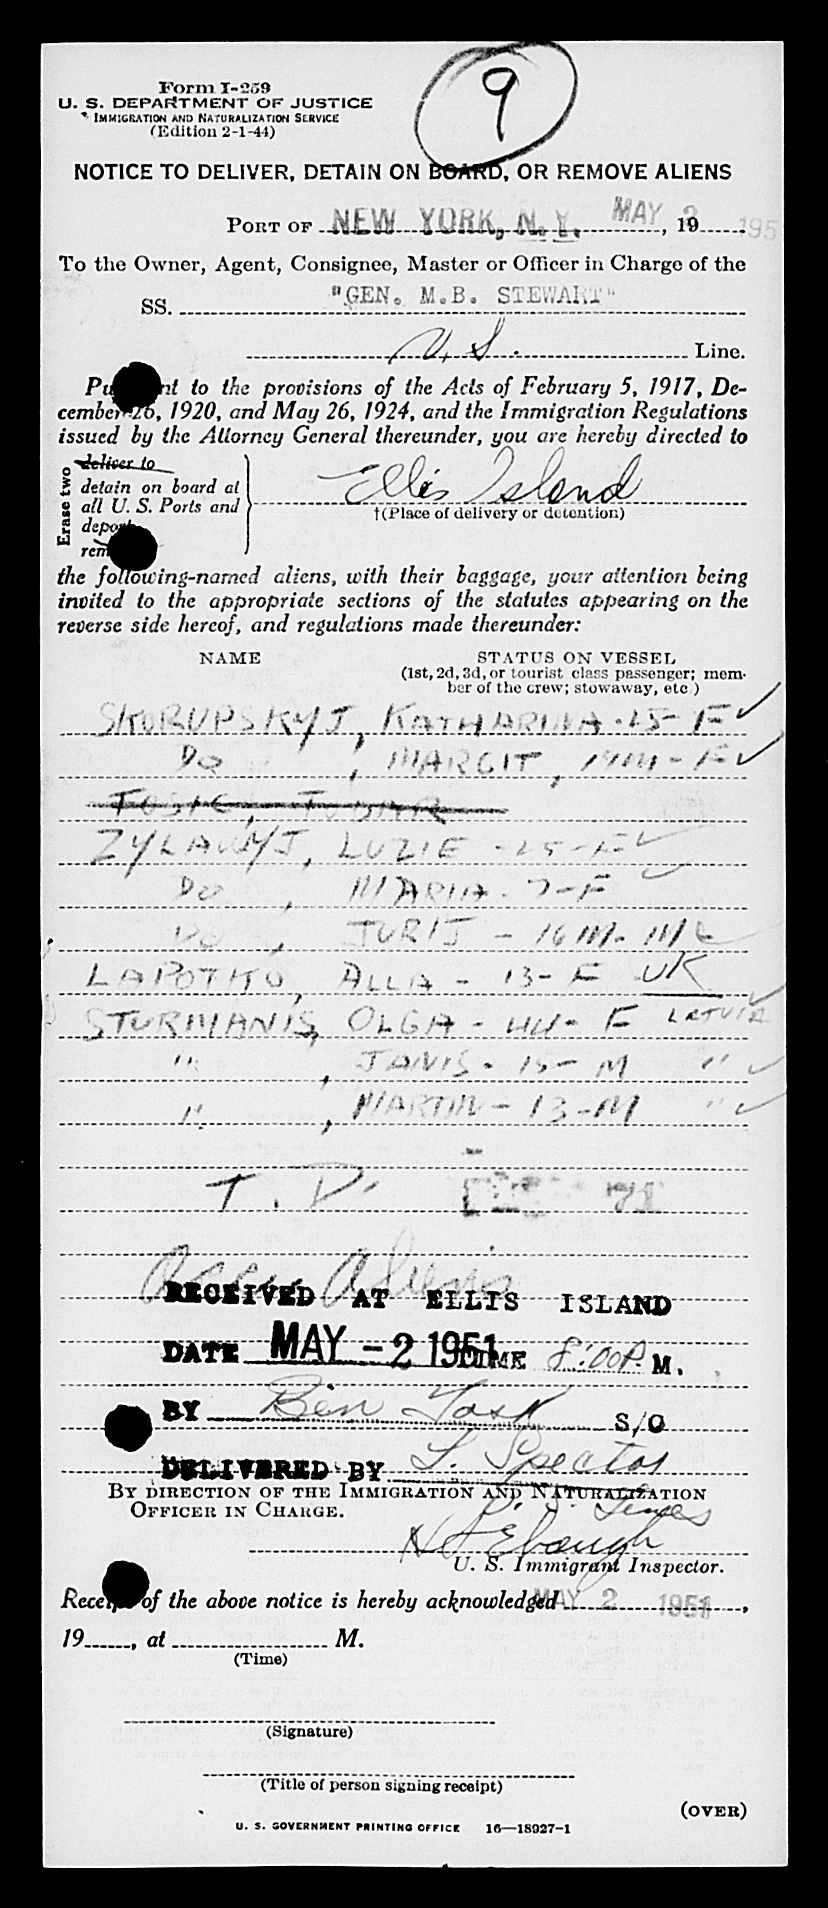 9
Form I-259
U. S. DEPARTMENT OF JUSTICE
IMMIGRATION AND NATURALIZATION SERVICE
(Edition 2-1-44)
NOTICE TO DELIVER, DETAIN ON BOARD, OR REMOVE ALIENS
PORT OF NEW YORK, N. Y. MAY 2, 19 195
To the Owner, Agent, Consignee, Master or Officer in Charge of the
SS. "GEN. M.B. STEWART"
U. S. Line.
Pu nt to the provisions of the Acts of February 5, 1917, De-
cember 26, 1920, and May 26, 1924, and the Immigration Regulations
issued by the Attorney General thereunder, you are hereby directed to
Erase two
deliver to
detain on board at
all U. S. Ports and
depo
rem
Ellis Island
†(Place of delivery or detention)
the following-named aliens, with their baggage, your attention being
invited to the appropriate sections of the statutes appearing on the
reverse side hereof, and regulations made thereunder:
NAME STATUS ON VESSEL
(1st, 2d, 3d, or tourist class passenger; mem-
ber of the crew; stowaway, etc )
SKORUPSKYJ, KATHARINA - 25 - F ✓
Do , MARGIT, - F ✓
ZYLAWYJ, LUZIE - 25 - F ✓
Do , MARIA - 7 - F ✓
Do , JURIJ - 16 M. M ✓
LAPOTKO, ALLA - 13 - F UK
STURMANIS, OLGA - 44 - F LATVIA ✓
" , JANIS - 15 - M " ✓
" , MARTIN - 13 - M " ✓
T. D.
Aliens
RECEIVED AT ELLIS ISLAND
DATE MAY - 2 1951 TIME 8:00 P. M.
BY Ben S/O
DELIVERED BY L. Spector
BY DIRECTION OF THE IMMIGRATION AND NATURALIZATION
OFFICER IN CHARGE. U. S. Lines
U. S. Immigrant Inspector.
Receipt of the above notice is hereby acknowledged MAY 2 1951,
19 , at M.
(Time)
(Signature)
(Title of person signing receipt)
(OVER)
U. S. GOVERNMENT PRINTING OFFICE 16—18927-1